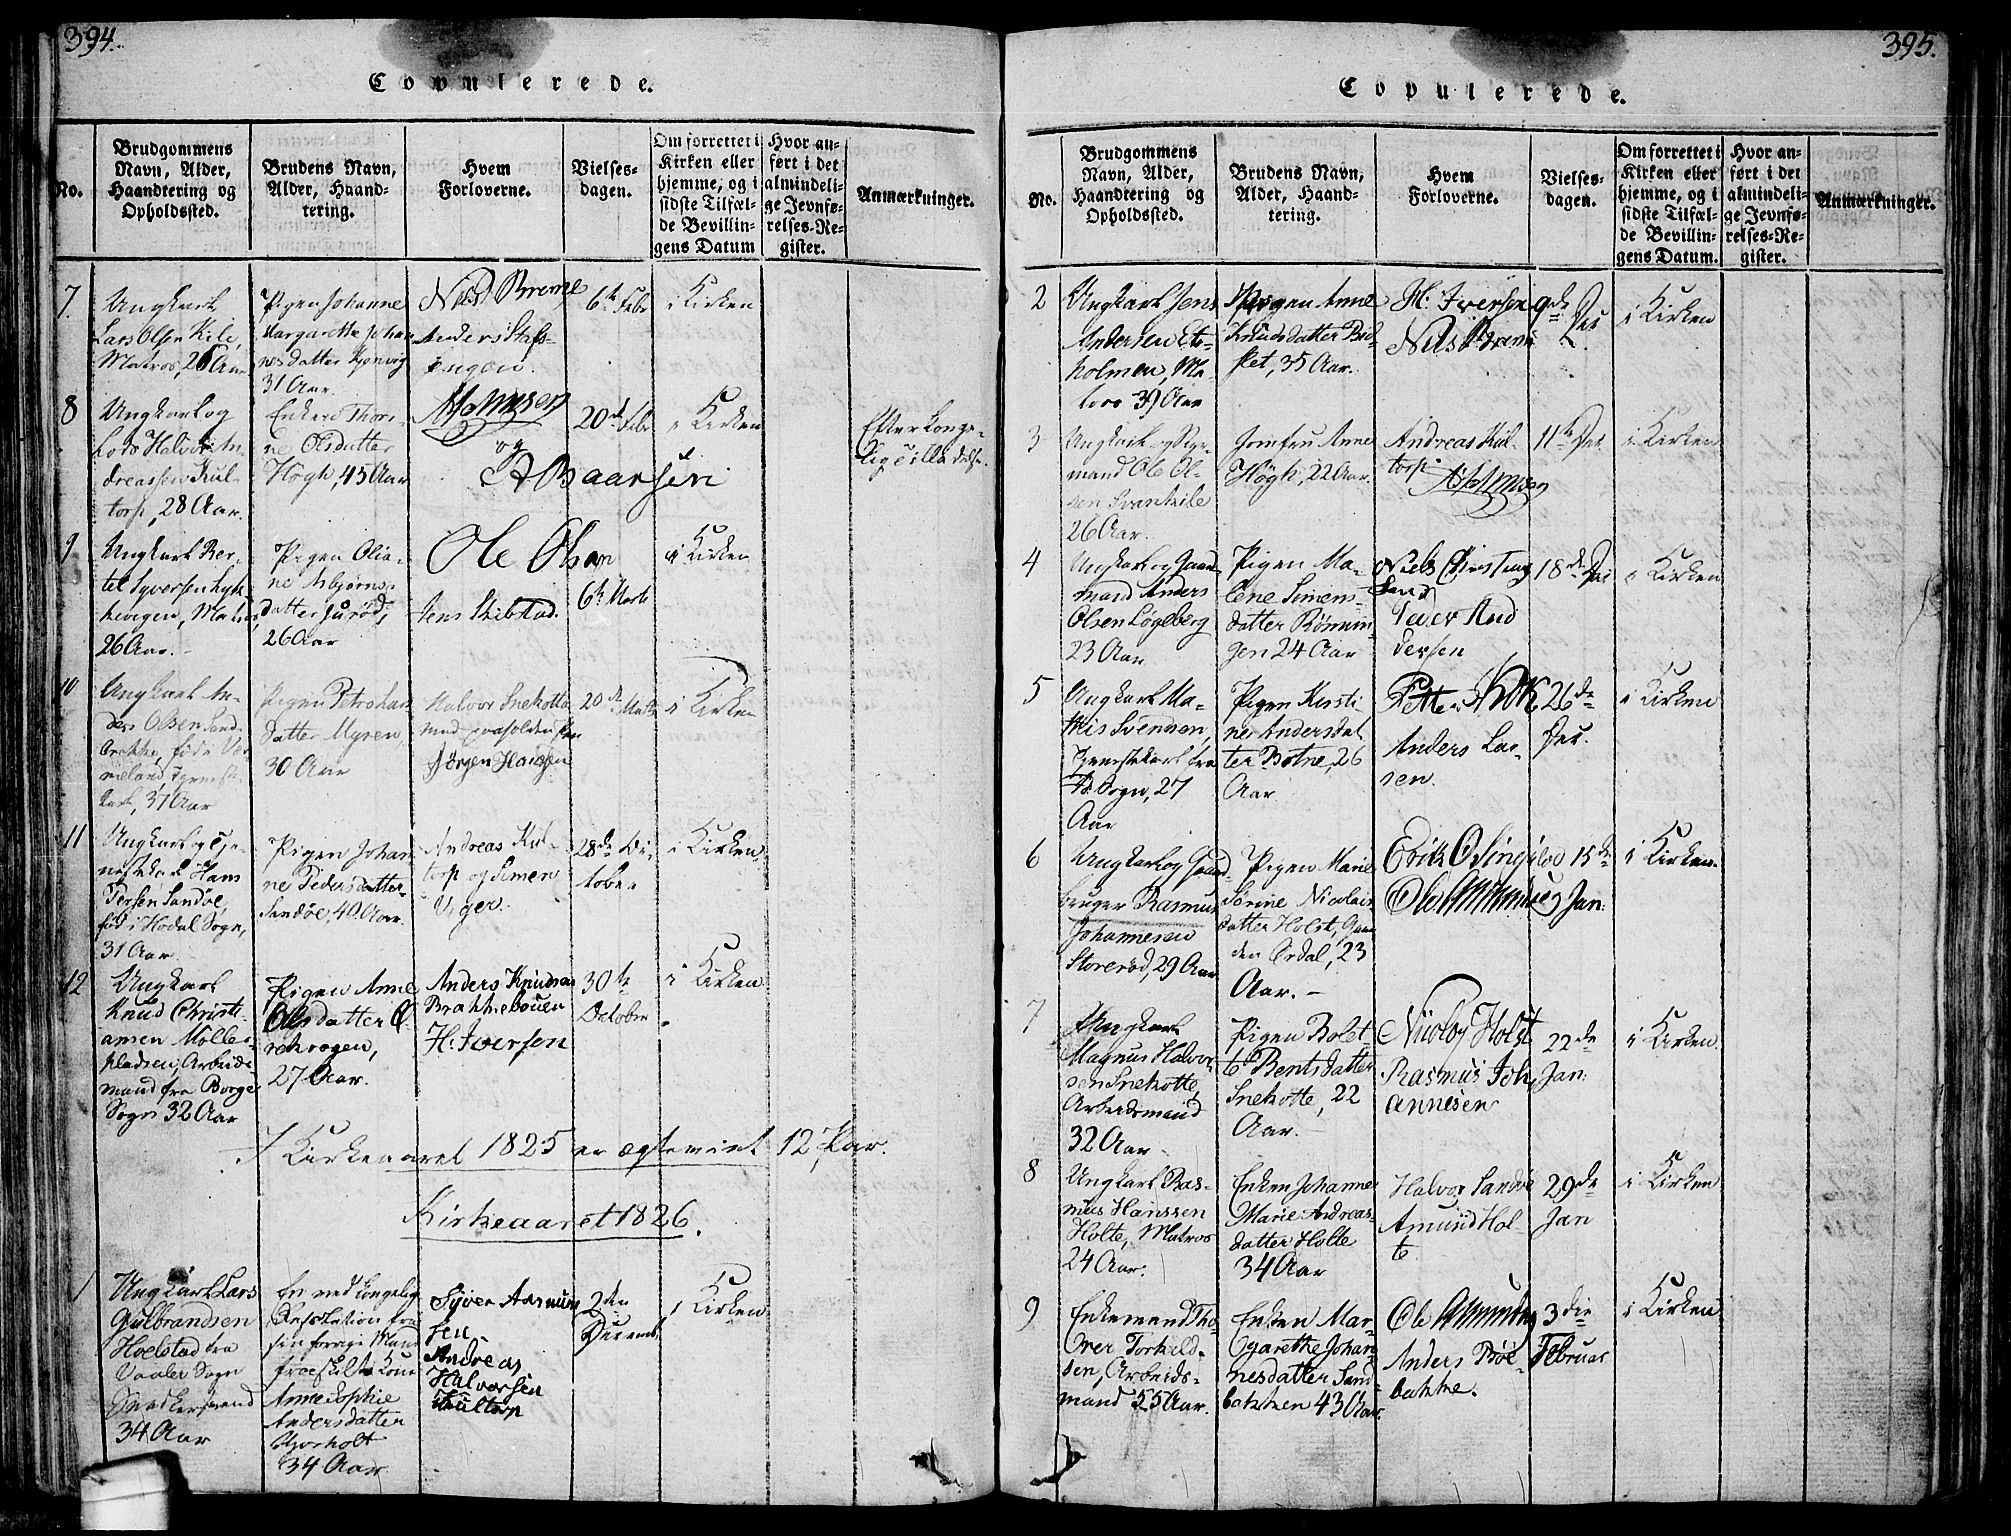 394.
Copulerede.
No.
Brudgommens
Navn, Alder,
Haandtering og
Opholdssted.
Brudens Navn,
Alder, Haand-
tering.
Hvem
Forloverne.
Vielses-
dagen.
Om forrettet i
Kirken eller
hjemme, og i
sidste Tilfæl-
de Bevillin-
gens Datum
Hvor an-
ført i det
almindeli-
ge Jevnfø-
relses-Re-
gister.
Anmærkninger.
7.
Ungkarl
Lars Olsen Kile,
Matros, 26 Aar
Pigen Johanne
Margarethe Johan
nesdatter
31 Aar
Niels Breme
Anders Stafs-
engen.
6te Febr
i Kirken
8
Ungkarl og
Lods Halvor An
dreassen Kul-
torp, 28 Aar.
Enken Thori-
ne Olsdatter
Høgh, 45 Aar
og
A Baarsen
20de Febr
i Kirken
Efter Konge-
lig Tilladelse.
9
Ungkarl Ber-
tel Syversen
Matros,
26 Aar.
Pigen Olia-
ne Asbjørns-
datter
26 Aar
Ole Olsen
Jens Skibstad.
6te Marts
i Kirken
10
Ungkarl An-
ders Olsen Sand-
brekke, født i Ver-
meland, Tjeneste
karl, 37 Aar
Pigen
datter Myren,
30 Aar
Halvor Snekotte
Jørgen Hansen
20de Marts
i Kirken
11
Ungkarl og Tje-
nestekarl Hans
Persen Sandøe,
født i Hodal Sogn,
31 Aar
Pigen Johan
ne Pedersdatter
Sandøe, 40 Aar.
Andreas Kul-
torp og Simen
Viger.
28de Oc-
tober
i Kirken
12
Ungkarl
Knud Christi-
ansen Møller-
pladsen, Arbeids-
mand fra Borge
Sogn 32 Aar
Pigen Anne
Olsdatter
27 Aar.
Anders Knudsen
Brattebouen
H. Iversen
30te
October
i Kirken
I Kirkeaaret 1825 er ægteviet 12 Par.
Kirkeaaret 1826.
1
Ungkarl Lars
Gulbrandsen
Hoelstad fra
Vaaler Sogn
34 Aar
En ved Kongelig
Resolution fra
sin forrige Mand
fraeskilt Kone
Anne Sophie
Andersdatter
34 Aar.
Syver Aasmun
sen.
Andreas
Halvorsen
Kultorp
2den
Decemb.
i Kirken
395.
Copulerede.
No.
Brudgommens
Navn, Alder,
Haandtering og
Opholdssted.
Brudens Navn,
Alder, Haand-
tering.
Hvem
Forloverne.
Vielses-
dagen.
Om forrettet i
Kirken eller
hjemme, og i
sidste Tilfæl-
de Bevillin-
gens Datum.
Hvor an-
ført i det
almindeli-
ge Jevnfø-
relses-Re-
gister.
Anmærkninger.
2
Ungkarl Jens
Andersen
holmen, Ma-
tros 39 Aar
Pigen Anne
Knudsdatter
35 Aar.
H. Iversen
Niels Breme
9de
Dec
i Kirken
3
Ungkarl og
mand Ole Ol-
sen Svankile
26 Aar.
Jomfru Anne
Høgh, 22 Aar.
Andreas Kul-
torp
11te Dec
i Kirken
4
Ungkarl og Gaard
mand Anders
Olsen Løgeberg
23 Aar
Pigen Ma-
lene Simens-
datter Rønnin-
gen 24 Aar
Niels
Peder And
dersen
18de Dec
i Kirken
5
Ungkarl Ma-
this Svensen,
Tjenestekarl fra
Sogn, 27
Aar
Pigen Kersti-
ne Andersdat
ter Botne, 26
Aar
Anders Lar-
sen.
26de
Dec.
i Kirken
6
Ungkarl og Gaard-
bruger Rasmus
Johannesen
Storerød, 29 Aar
Pigen Marie
Sørine Nicolai
datter Holst, Gaar
den Ørdal, 23
Aar.
15de
Jan:
i Kirken.
7
Ungkarl
Magnus Halvor-
sen Snekotte,
Arbeidsmand
32 Aar
Pigen Bolet-
te Bentsdatter
Snekotte, 22
Aar.
Nicolay Holst
Rasmus Joh
annesen
22de
Jan:
i Kirken
8
Ungkarl Ras-
mus Hanssen
Holte, Matros
24 Aar.
Enken Johanne
Marie Andreas-
datter Holte
34 Aar
Halvor Sandøe
Amund Hol-
te
29de
Jan
i Kirken
9
Enkemand Tho-
rer Torkild-
sen, Arbeids-
mand 55 Aar.
Enken Mar-
garethe Johan
nesdatter Sand-
bakken 43 Aar.
Anders Bøe-
bakke.
3die
Februar
i Kirken